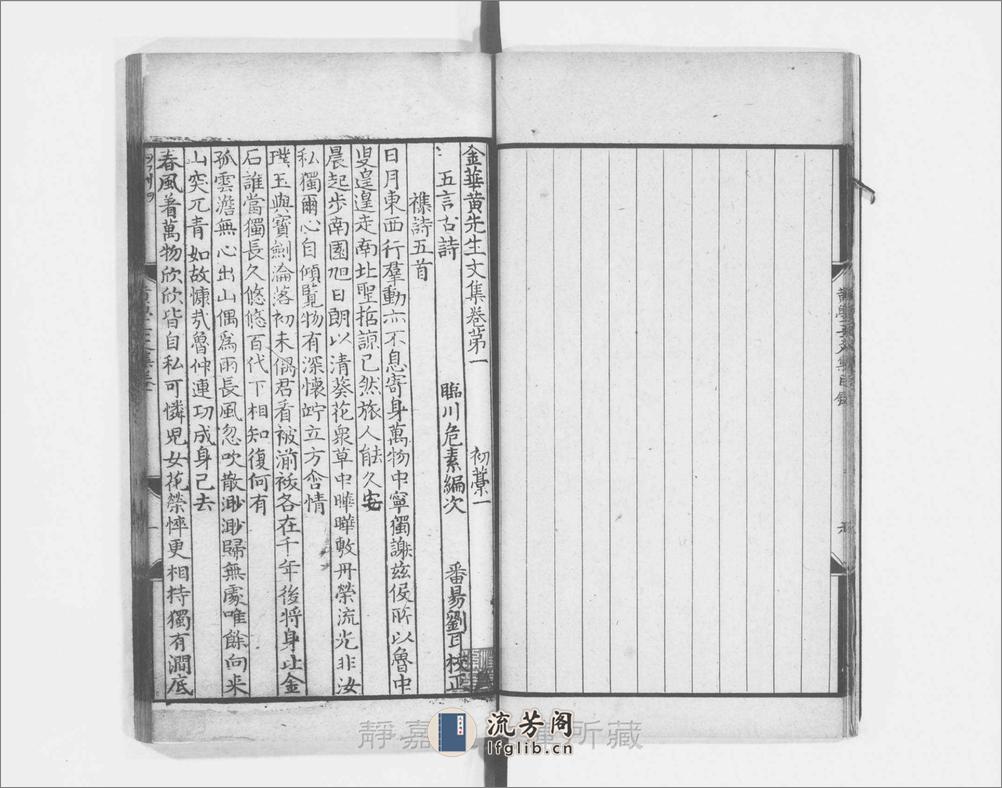 金華黃先生文集卷第一　初藁一
五言古詩　臨川危素編次　番昜劉耳校正
襍詩五首
日月東西行羣動亦不息寄身萬物中寧獨謝茲役所以魯中
叟遑遑走南北聖哲諒已然旅人能久安
晨起步南園旭日朗以清葵花衆草中曄曄敷丹榮流光非汝
私獨爾心自傾覧物有深懷竚立方含情
璞玉與寶劍淪落初未偶君看被湔祓各在千年後將身比金
石誰當獨長久悠悠百代下相知復何有
孤雲澹無心出山偶爲雨長風忽吹散渺渺歸無處唯餘向来
山突兀青如故慷慨魯仲連功成身已去
春風着萬物欣欣皆自私可憐児女花榮悴更相持獨有澗底
靜嘉 所藏
流芳阁
lfglib.cn